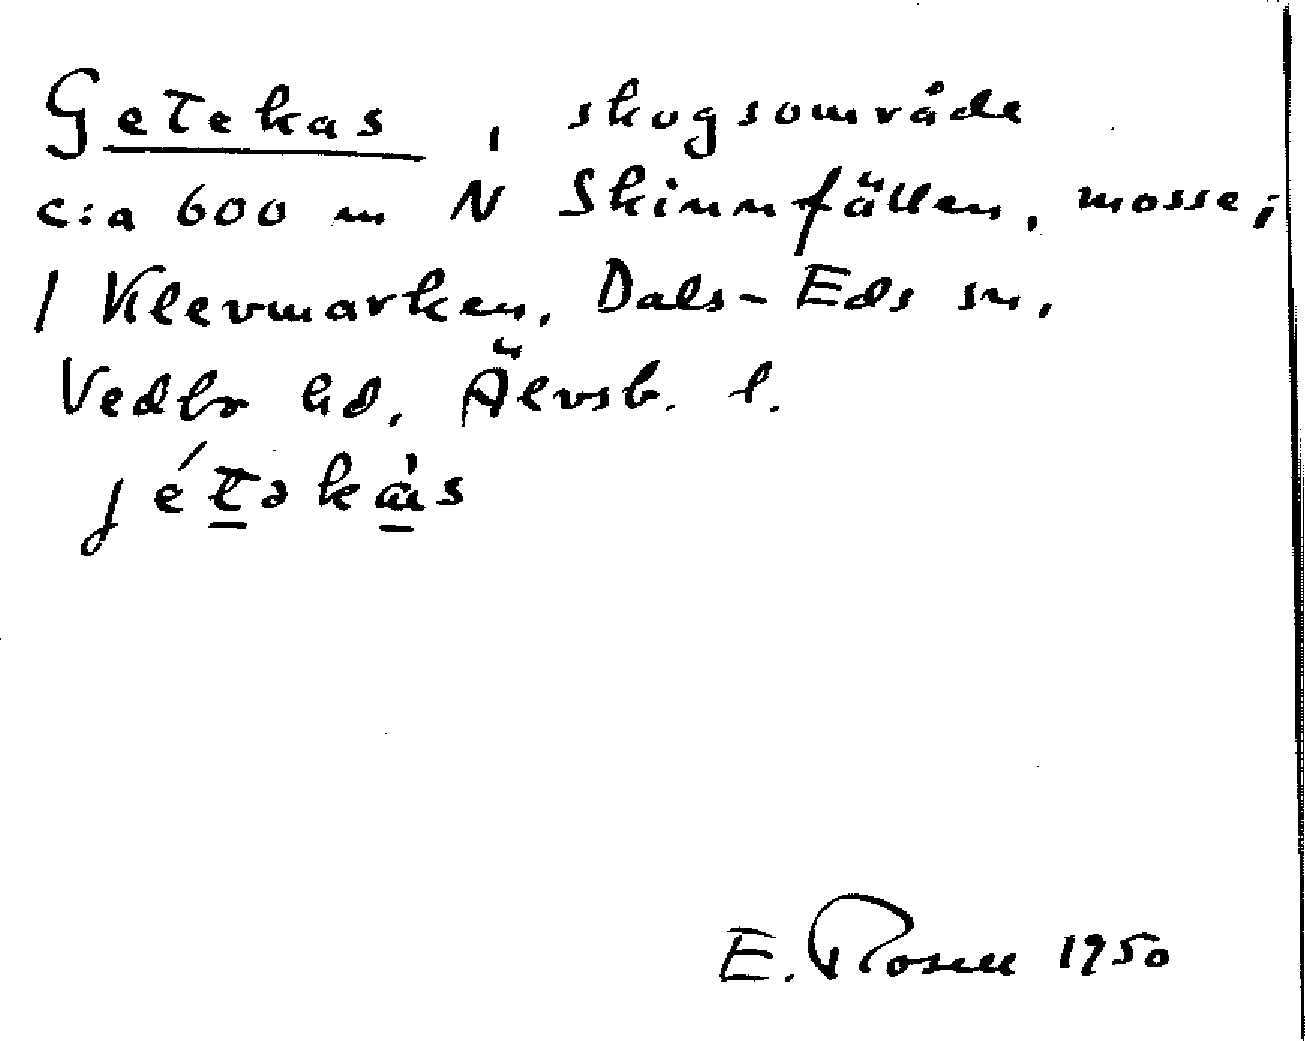 Getekas, skogsområde
c:a 600 m N Skinnfällen, mosse;
/ Klevmarken, Dals-Eds sn,
Vedbo hd, Älvsb. l.
jétəkàs
E. Rosell 1950